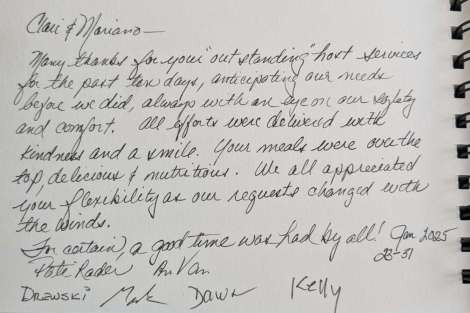 Clari & Mariano—
Many thanks for your "out standing" host services
for the past ten days, anticipating our needs
before we did, always with an eye on our safety
and comfort. All efforts were delivered with
kindness and a smile. Your meals were over the
top, delicious & nutritious. We all appreciated
your flexibility as our requests changed with
the winds.
For certain, a good time was had by all! Jan 2025
Pete Rader An Van 23-31
Drewski Mark Dawn Kelly